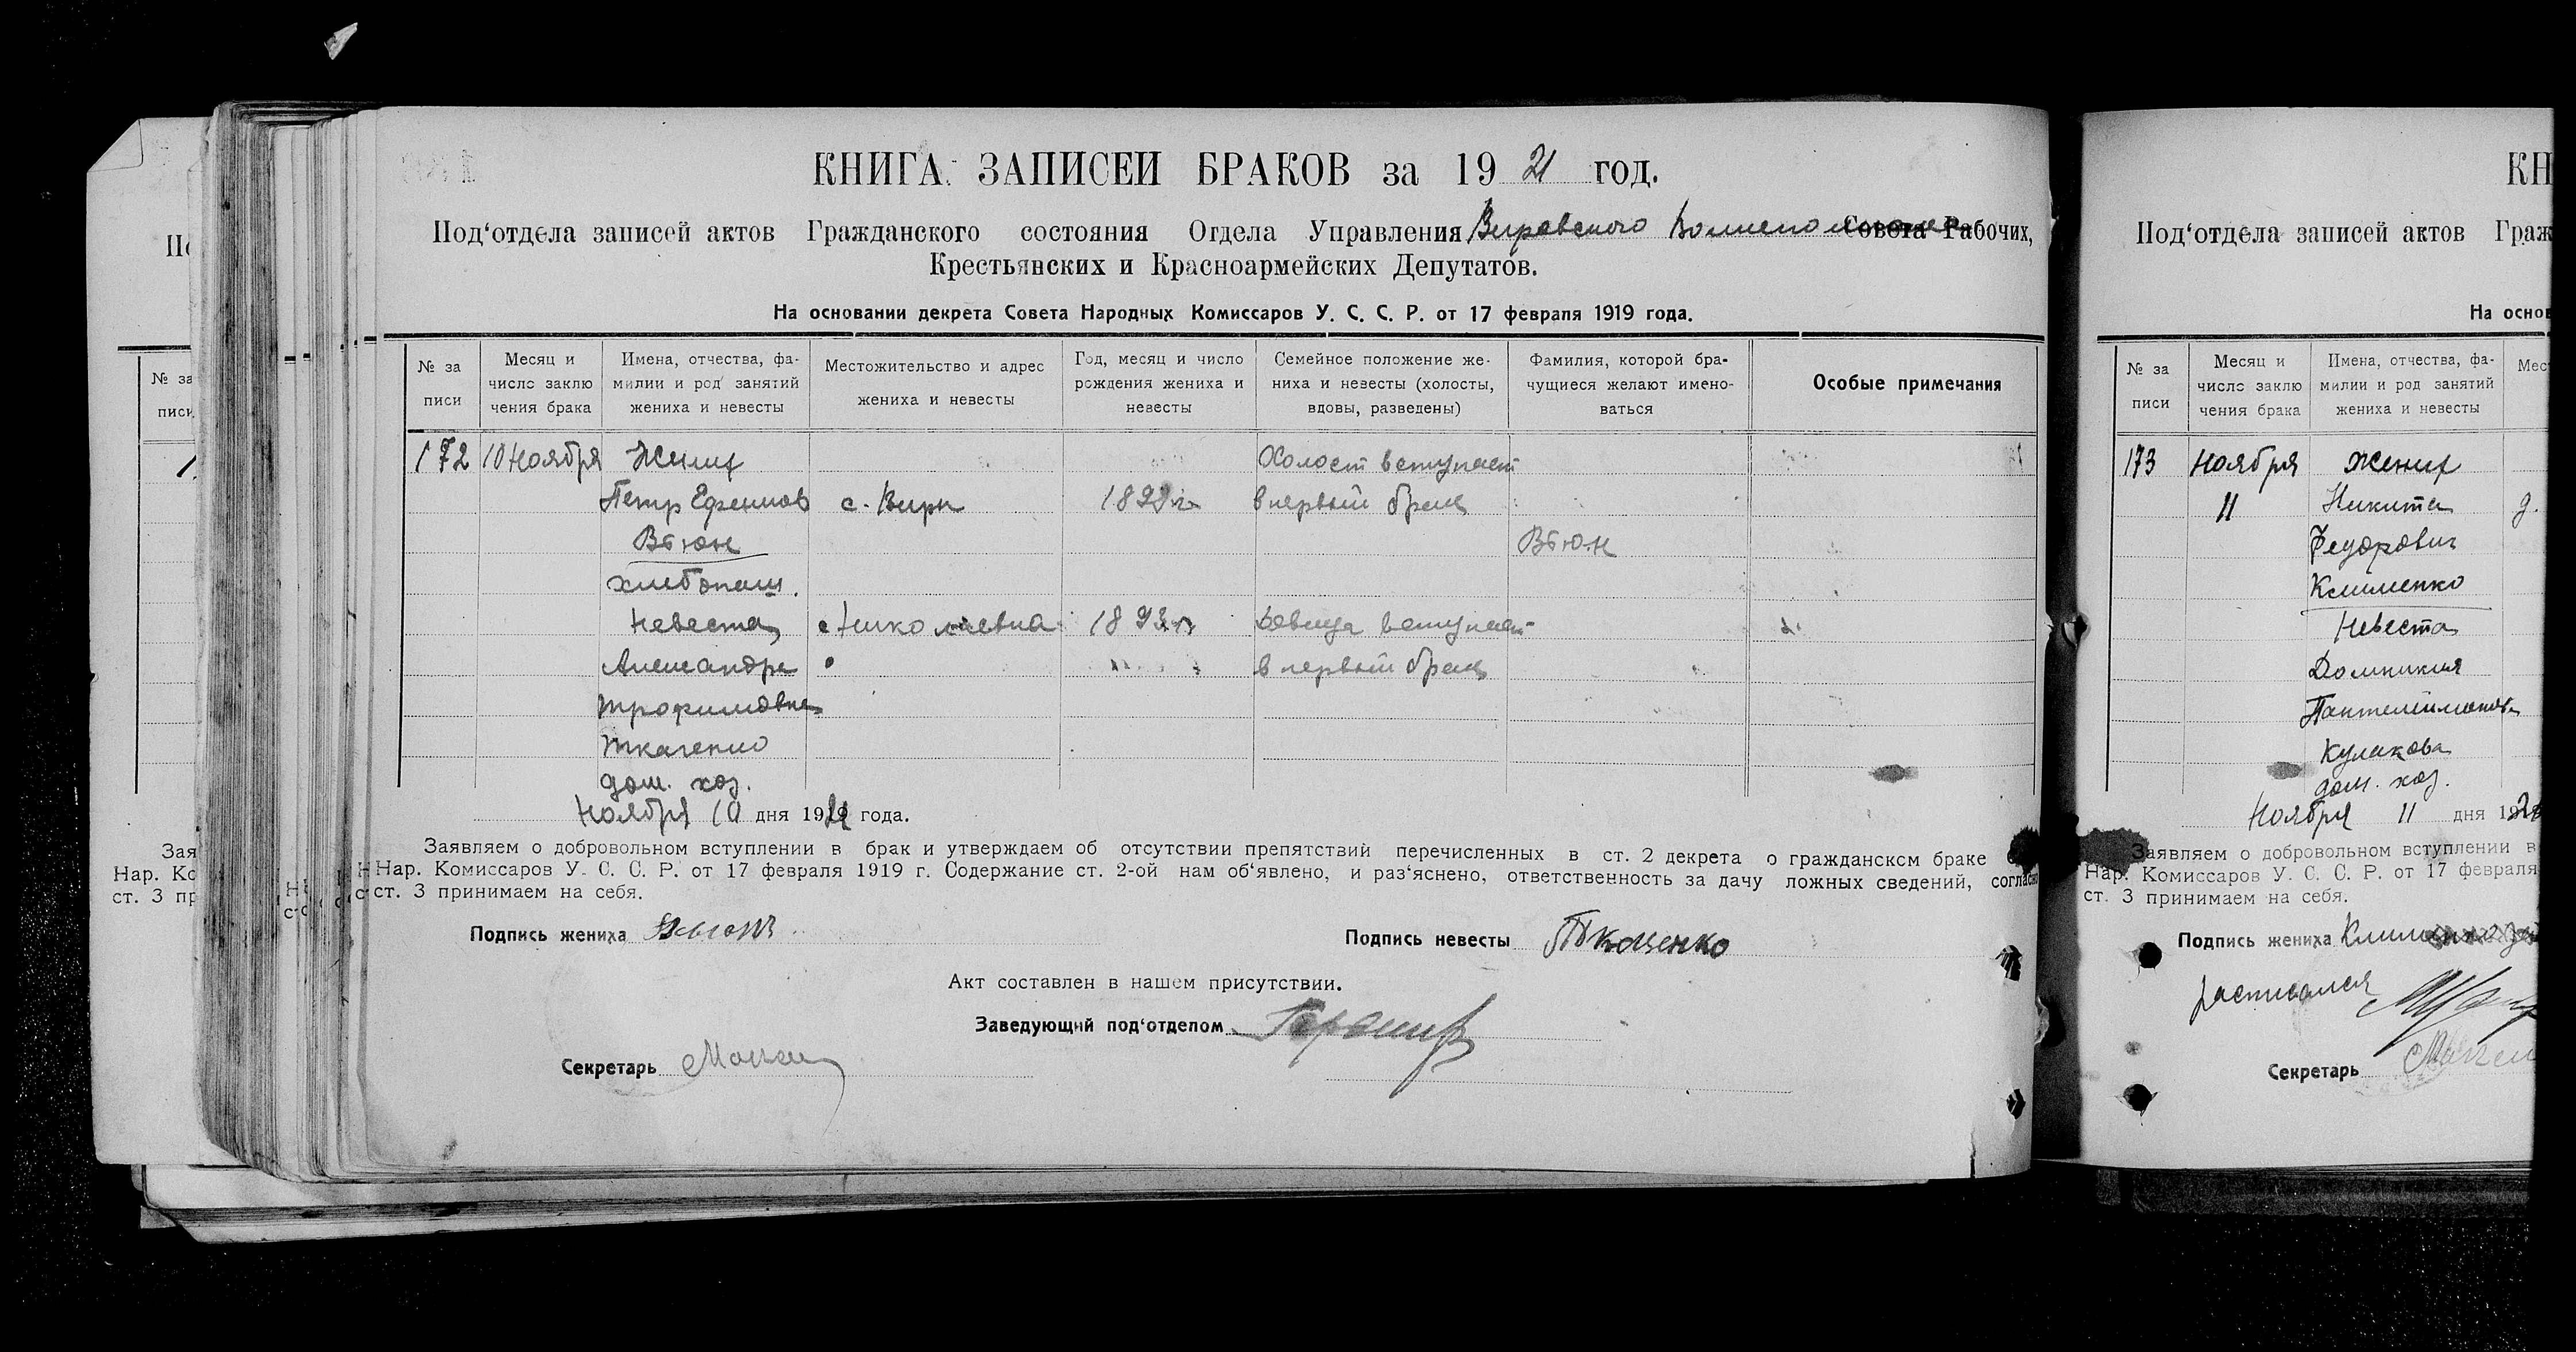 КНИГА ЗАПИСЕЙ БРАКОВ за 1921 год.
Под‘отдела записей актов Гражданского состояния Отдела Управления Вировского Совета Рабочих,
Крестьянских и Красноармейских Депутатов.
На основании декрета Совета Народных Комиссаров У. С. С. Р. от 17 февраля 1919 года.
№ за писи
Месяц и число заклю чения брака
Имена, отчества, фа- милии и род занятий жениха и невесты
Местожительство и адрес жениха и невесты
Год, месяц и число рождения жениха и невесты
Семейное положение же- ниха и невесты (холосты, вдовы, разведены)
Фамилия, которой бра- чущиеся желают имено- ваться
Особые примечания
172 10 Ноября Жених Холост вступает
Петр Ефимов с. Виры в первый брак
Вьюн Вьюн
хлебопаш.
Невеста с Николаевка 1893 г Девица вступает
Александра в первый брак
Трофимовна
Ткаченко
дом. хоз.
Ноября 10 дня 1921 года.
Заявляем о добровольном вступлении в брак и утверждаем об отсутствии препятствий перечисленных в ст. 2 декрета о гражданском браке
Нар. Комиссаров У. С. С. Р. от 17 февраля 1919 г. Содержание ст. 2-ой нам об‘явлено, и раз‘яснено, ответственность за дачу ложных сведений, согласно
ст. 3 принимаем на себя.
Подпись жениха Вьюн
Подпись невесты Ткаценко
Акт составлен в нашем присутствии.
Заведующий под‘отделом
Секретарь
КН
Под‘отдела записей актов Граж
На основ
№ за писи
Месяц и число заклю чения брака
Имена, отчества, фа- милии и род занятий жениха и невесты
Мес
173 Ноября Жених
11 Никита д.
Федорович
Клименко
Невеста
Домникия
Пантелеймонов
Кулакова
дом. хоз.
Ноября 11 дня
Заявляем о добровольном вступлении в
Нар. Комиссаров У. С. С. Р. от 17 февраля
ст. 3 принимаем на себя.
Подпись жениха
расписался
Секретарь
№ за
писи
Зая
Нар. Ко
ст. 3 пр